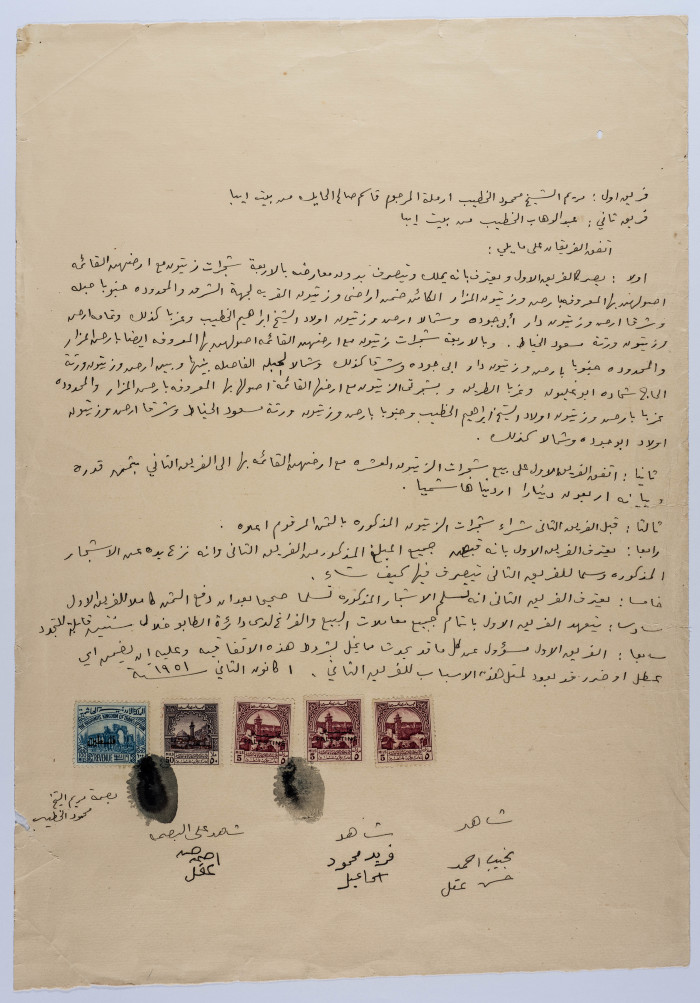 فريق اول : مريم الشيخ محمود الخطيب ارملة المرحوم قاسم صالح الحايك من بيت ايبا
فريق ثاني : عبد الوهاب الخطيب من بيت ايبا
اتفق الفريقان على ما يلي :
اولا : يصرح الفريق الاول ويعترف بانه يملك ويتصرف بدون معارض بالاربعة شجرات زيتون مع ارضهن القائمه
اصولهن بها المعروفه بارض وزيتون المزار الكائن ضمن اراضي وزيتون القريه لجهة الشرق والمحدوده جنوبا حبله
وشرقا ارض وزيتون دار أبي جوده وشمالا ارض وزيتون اولاد الشيخ ابراهيم الخطيب وغربا كذلك وتمامه ارض
وزيتون ورثة مسعود الخياط . وبالاربعة شجرات زيتون مع ارضهن القائمه اصولهن بها المعروفه ايضا بارض المزار
والمحدوده جنوبا بارض وزيتون دار ابي جوده وشرقا كذلك وشمالا الحبله الفاصله بينها وبين ارض وزيتون ورثة
الحاج شحاده ابو غليون وغربا الطريق و بشجرتي الزيتون مع ارضها القائمة اصولها بها المعروفه بارض المزار والمحدوده
غربا بارض وزيتون اولاد الشيخ ابراهيم الخطيب وجنوبا بارض وزيتون ورثة مسعود الخياط وشرقا ارض وزيتون
اولاد ابو جوده وشمالا كذلك .
ثانيا : اتفق الفريق الاول على بيع شجرات الزيتون العشره مع ارضهن القائمه بها الى الفريق الثاني بثمن قدره
اربعون دينارا اردنيا هاشميا .
ثالثا : قبل الفريق الثاني شراء شجرات الزيتون المذكوره بالثمن المرقوم اعلاه .
رابعا : يعترف الفريق الاول بانه قبض جميع المبلغ المذكور من الفريق الثاني وانه نزع يده عن الاشجار
المذكوره وسمح للفريق الثاني يتصرف فيها كيف شاء .
خامسا : يعترف الفريق الثاني انه تسلم الاشجار المذكوره تسلما صحيحا بعد ان دفع الثمن كاملا للفريق الاول
سادسا : يتعهد الفريق الاول باتمام جميع معاملات البيع والفراغ لدى دائرة الطابو خلال سنتين قابلة للتجدد
سابعا : الفريق الاول مسؤول عن كل ما قد يحدث مما يخل بشروط هذه الاتفاقيه وعليه ان يضمن اي
عطل او ضرر قد يعود لمثل هذه الاسباب للفريق الثاني . ١ كانون الثاني سنة ١٩٥١
THE HASHEMITE KINGDOM OF TRANSJORDAN
REVENUE
بصمة مريم الشيخ
محمود الخطيب
شاهد على البصمه
حسن
عقل
شاهد
فريد محمود
اسماعيل
شاهد
نجيب احمد
حسن عقل